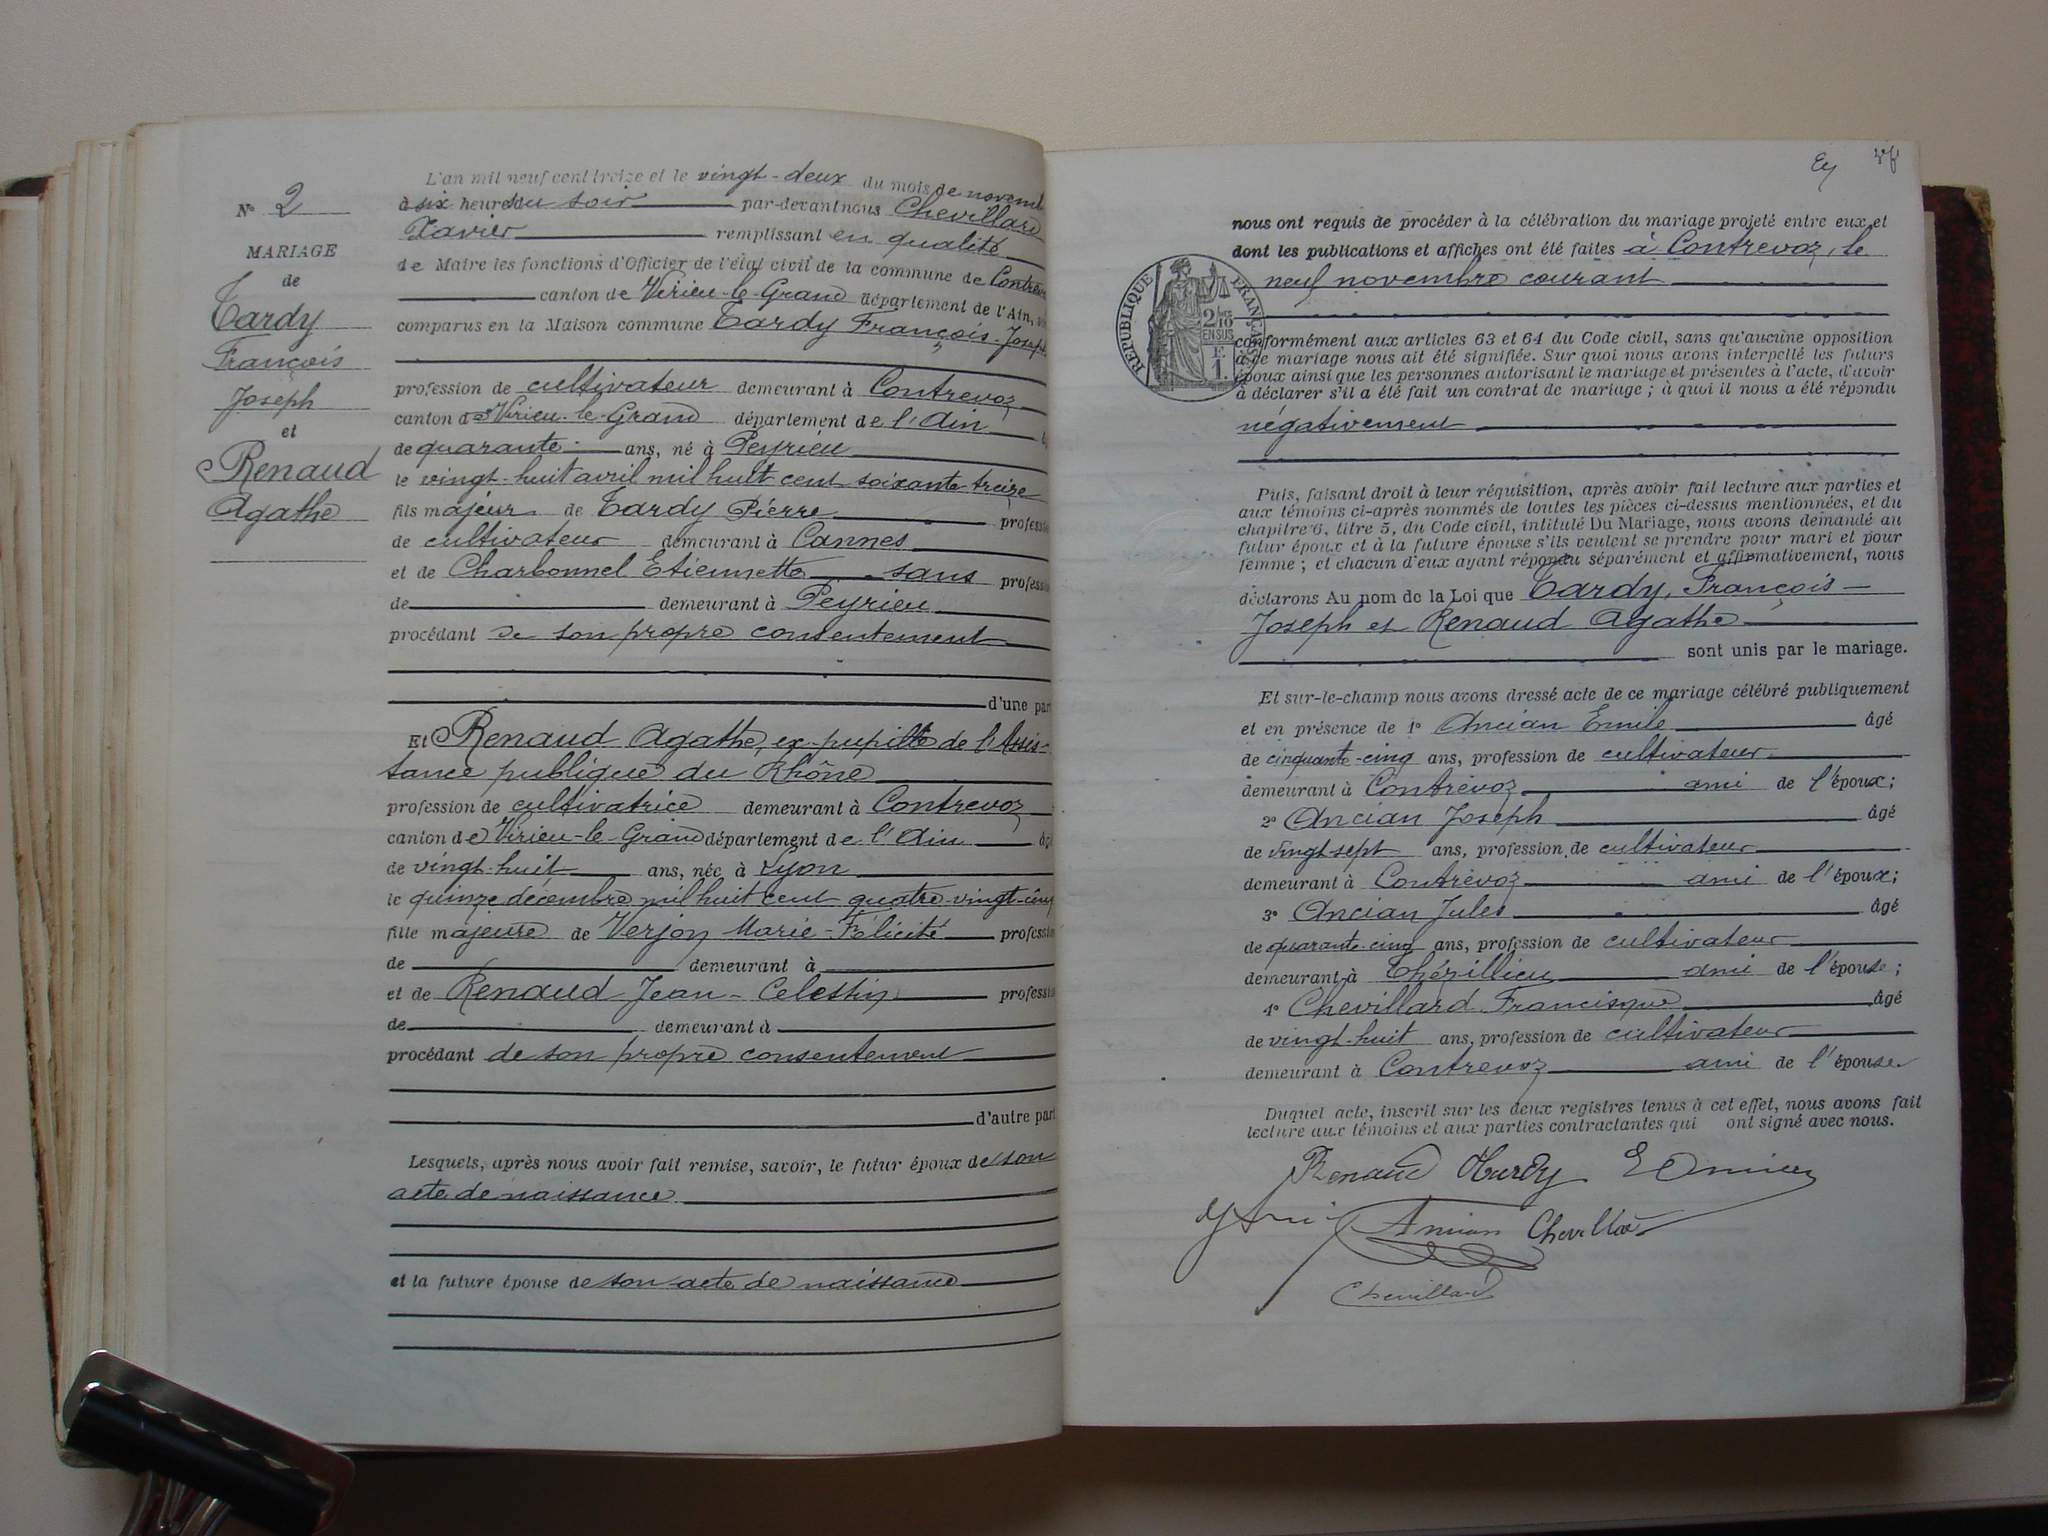 N° 2
MARIAGE
de
Tardy
François
Joseph
et
Renaud
Agathe
L'an mil neuf cent treize et le vingt-deux du mois de novem
à six heures du soir par-devant nous Chevillard
Xavier remplissant en qualité
de Maire les fonctions d'Officier de l'état civil de la commune de Contrev
canton de Virieu-le-Grand département de l'Ain,
comparus en la Maison commune Tardy François-Joseph
profession de cultivateur demeurant à Contrevoz
canton de Virieu-le-Grand département de l'Ain
de quarante ans, né à Peyrieu
le vingt-huit avril mil huit cent soixante treize
fils majeur de Tardy Pierre profession
de cultivateur demeurant à Cannes
et de Charbonnel Etiennette sans profession
de demeurant à Peyrieu
procédant de son propre consentement
d'une part
Et Renaud Agathe, ex-pupille de l'Assis-
tance publique du Rhône
profession de cultivatrice demeurant à Contrevoz
canton de Virieu-le-Grand département de l'Ain âg
de vingt-huit ans, née à Lyon
le quinze décembre mil huit cent quatre-vingt-cinq
fille majeure de Verjon Marie-Félicité profession
de demeurant à
et de Renaud Jean-Celestin profession
de demeurant à
procédant de son propre consentement
d'autre part
Lesquels, après nous avoir fait remise, savoir, le futur époux de son
acte de naissance
et la future épouse de son acte de naissance
nous ont requis de procéder à la célébration du mariage projeté entre eux et
dont les publications et affiches ont été faites à Contrevoz, le
neuf novembre courant
RÉPUBLIQUE FRANÇAISE
2/10
EN SUS
F.
1.
conformément aux articles 63 et 64 du Code civil, sans qu'aucune opposition
à ce mariage nous ait été signifiée. Sur quoi nous avons interpellé les futurs
époux ainsi que les personnes autorisant le mariage et présentes à l'acte, d'avoir
à déclarer s'il a été fait un contrat de mariage ; à quoi il nous a été répondu
négativement
Puis, faisant droit à leur réquisition, après avoir fait lecture aux parties et
aux témoins ci-après nommés de toutes les pièces ci-dessus mentionnées, et du
chapitre 6, titre 5, du Code civil, intitulé Du Mariage, nous avons demandé au
futur époux et à la future épouse s'ils veulent se prendre pour mari et pour
femme ; et chacun d'eux ayant répondu séparément et affirmativement, nous
déclarons Au nom de la Loi que Tardy, François-
Joseph et Renaud Agathe
sont unis par le mariage.
Et sur-le-champ nous avons dressé acte de ce mariage célébré publiquement
et en présence de 1° Ancian Emile âgé
de cinquante-cinq ans, profession de cultivateur
demeurant à Contrevoz ami de l'époux ;
2° Ancian Joseph âgé
de vingt-sept ans, profession de cultivateur
demeurant à Contrevoz ami de l'époux ;
3° Ancian Jules âgé
de quarante-cinq ans, profession de cultivateur
demeurant à Thézillieu ami de l'épouse ;
4° Chevillard Francisque âgé
de vingt-huit ans, profession de cultivateur
demeurant à Contrevoz ami de l'épouse
Duquel acte, inscrit sur les deux registres tenus à cet effet, nous avons fait
lecture aux témoins et aux parties contractantes qui ont signé avec nous.
Renaud
Chevillard
Chevillard